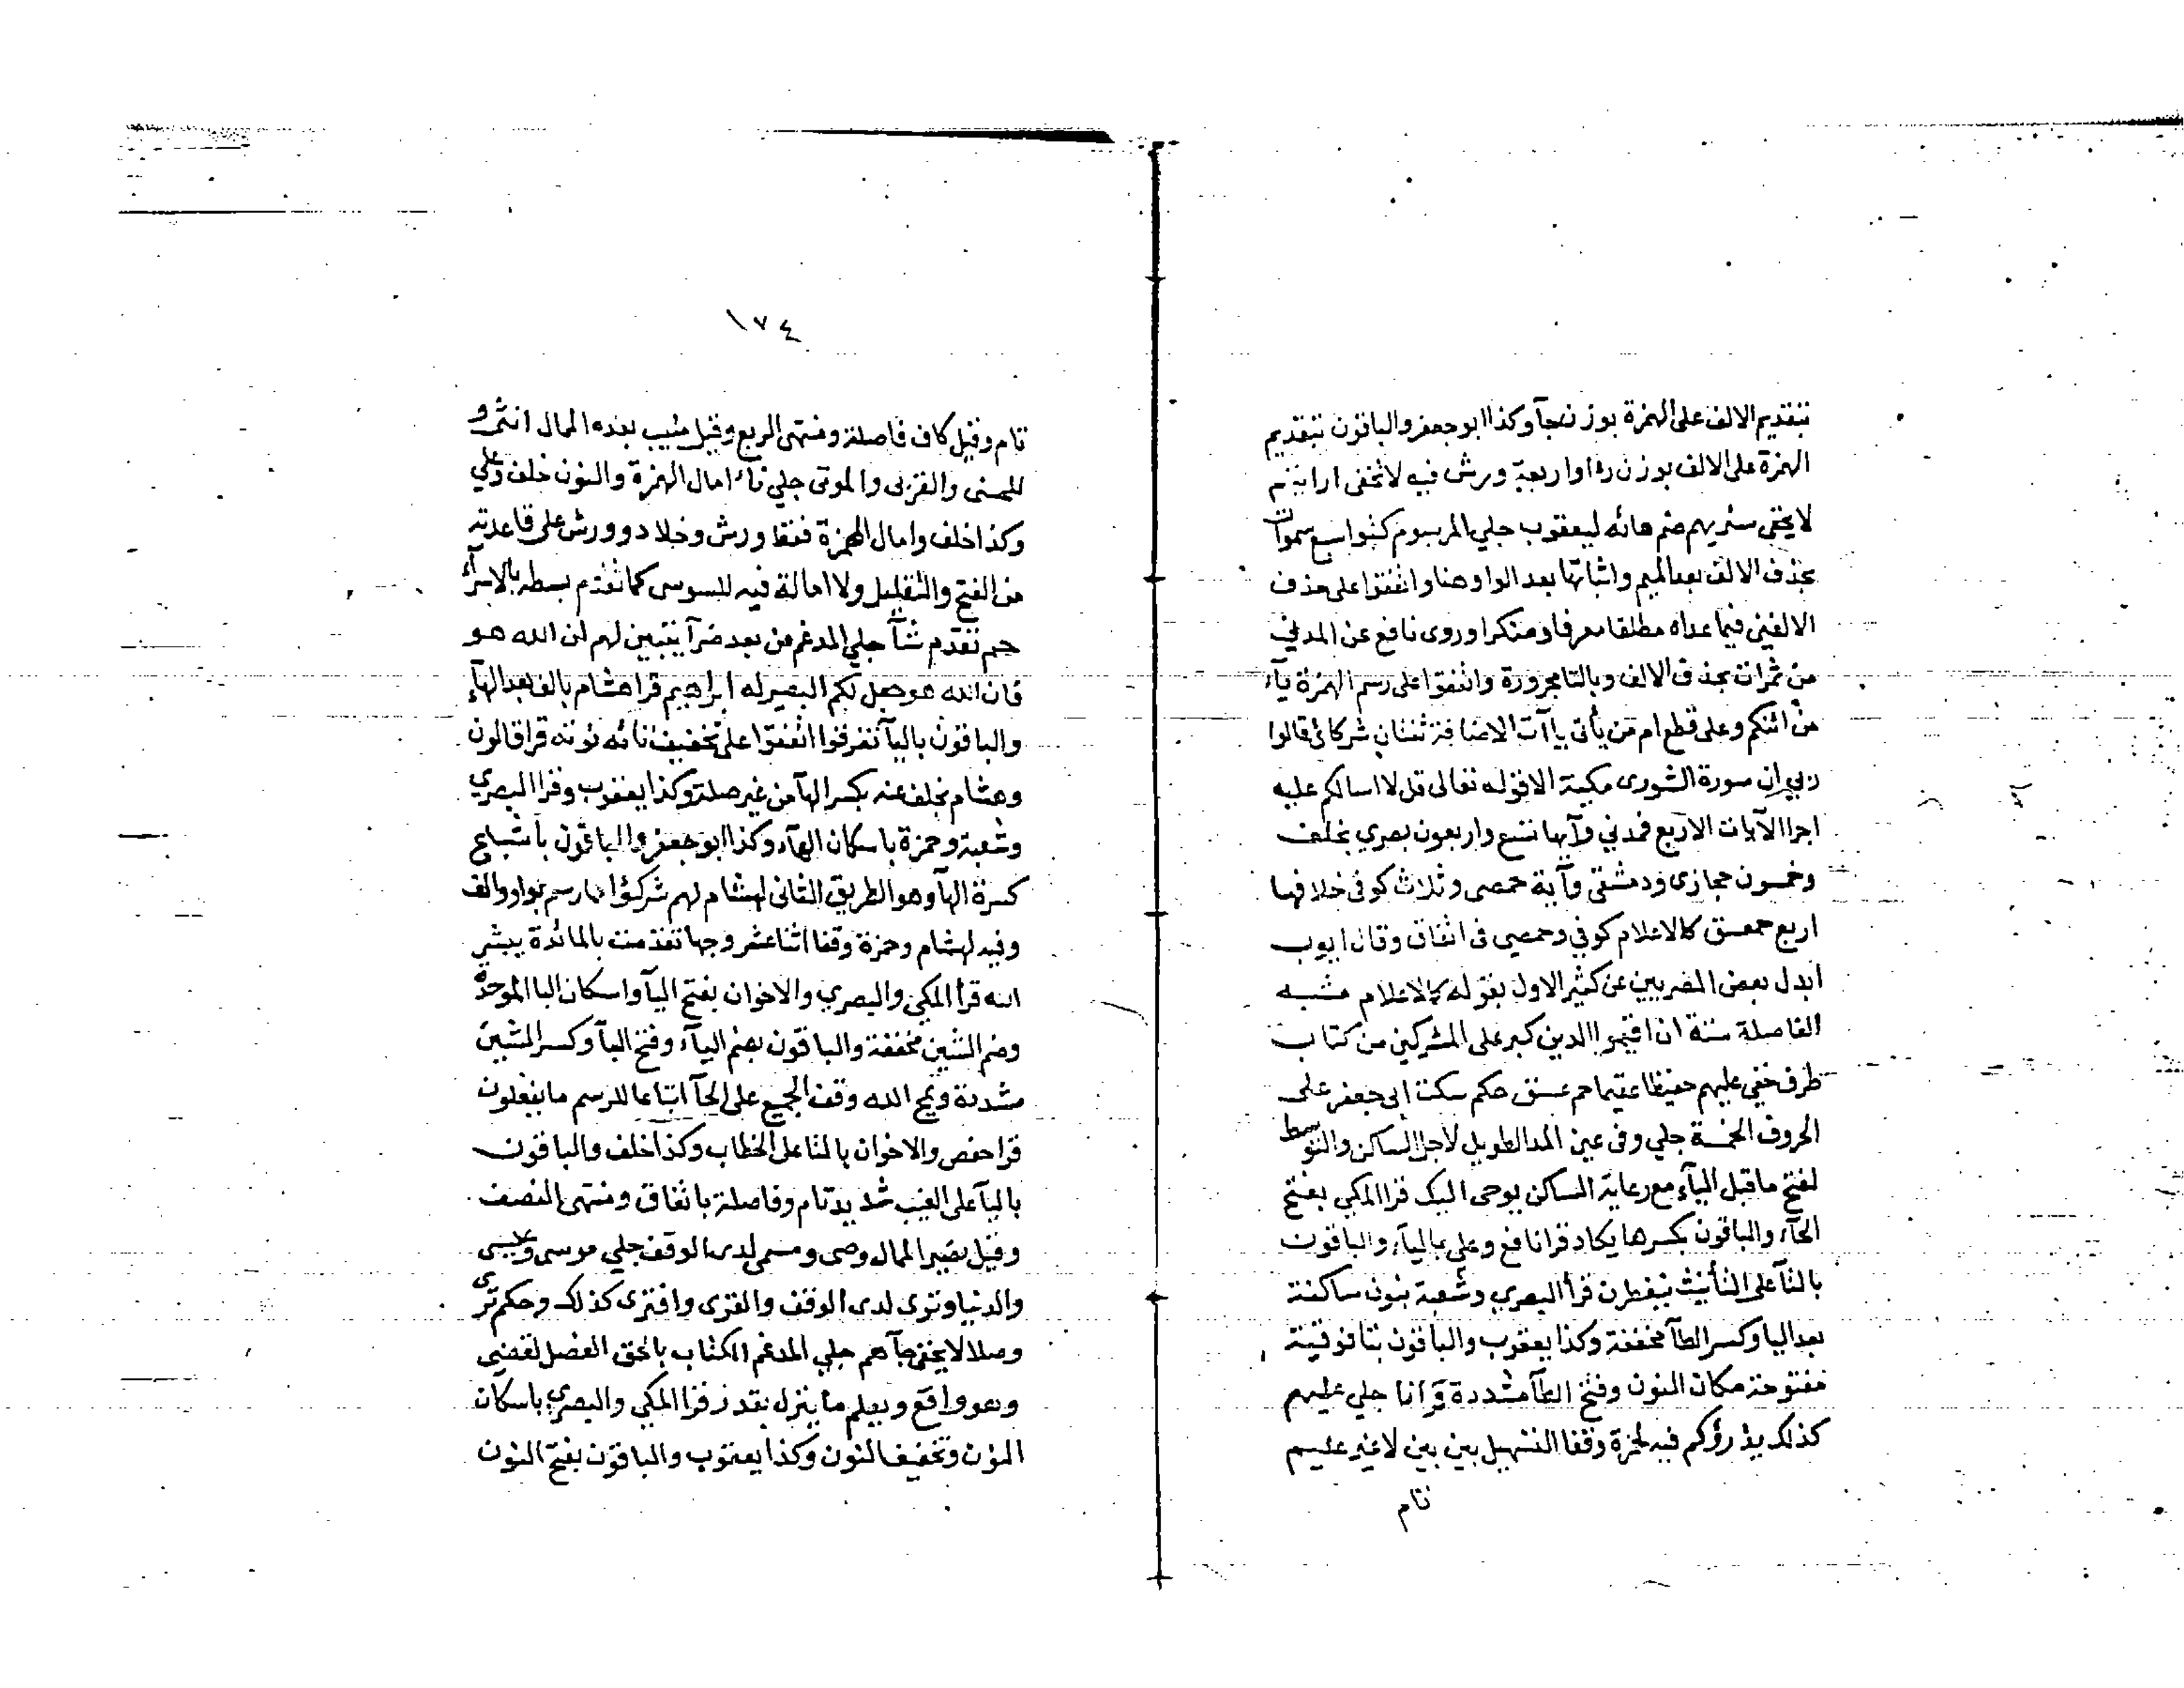 بتقديم الالف على الهمزة بوزن جآ وكذا ابو جعفر والباقون بتقديم
الهمزة على الالف بوزن رءا واربعة ورش فيه لا تخفى ارايتم
لا يخفى سنريهم ضم هائه ليعقوب جلي المرسوم كتبوا سبع سموات
بحذف الالف بعد الميم واثباتها بعد الواو هنا واتفقوا على حذف
الالفين فيما عداه مطلقا معرفا ومنكرا وروى نافع عن المدني
من ثمرات بحذف الالف وبالتا مجرورة واتفقوا على رسم الهمزة يآء
من ائنكم وعلى قطع ام من يأتى ياآت الاضافة ثنتان شركائى قالوا
ربي ان سورة الشورى مكية الا قوله تعالى قل لا اسالكم عليه
اجرا الآيات الاربع فمدني وآيها تسع واربعون بصري بخلف
وخمسون حجازى ودمشقى وآية حمصى وثلاث كوفى خلافها
اربع حمعسق كالاعلام كوفي وحمصى فى اتفاق وقال ايوب
ابدل بعض المصريين عن كثير الاول بقوله كالاعلام مشبه
الفاصلة ستة ان اقيموا الدين كبر على المشركين من كتاب
طرف خفي عليهم حفيظا عقيما حم عسق حكم سكت ابى جعفر على
الحروف الخمسة جلي وفى عين المد الطويل لاجل الساكن والتوسط
لفتح ما قبل اليآء مع رعاية الساكن يوحى اليك قرا المكي بفتح
الحآء والباقون بكسرها يكاد قرا نافع وعلي باليآء والباقون
بالتآ على التأنيث يتفطرن قرأ البصري وشعبة بنون ساكنة
بعد اليا وكسر الطآ مخففة وكذا يعقوب والباقون بتا فوقية
مفتوحة مكان النون وفتح الطآ مشددة قرآنا جلي عليهم
كذلك يذرؤكم فيه لحمزة وقفا التسهيل بين بين لا غير عليم
تام
١٧٤
تام وقيل كاف فاصلة ومنتهى الربع وقيل منيب بعده الممال انثى و
للحسنى والقربى والموتى جلي نأا امال الهمزة والنون خلف وعلي
وكذا خلف وامال الهمزة فقط ورش وخلاد وورش على قاعدته
من الفتح والتقليل ولا امالة فيه للسوسى كما تقدم بسطه بالاسرآء
حم تقدم شآ جلي المدغم من بعد ضرآ يتبين لهم ان الله هو
فان الله هو جعل لكم البصير له ابراهيم قرا هشام بالف بعد الهآء
والباقون باليآ تفرقوا اتفقوا على تخفيف تائه نؤته قرا قالون
وهشام بخلف عنه بكسر الهآ من غير صلة وكذا يعقوب وقرا البصري
وشعبة وحمزة باسكان الهآء وكذا ابو جعفر والباقون باشباع
كسرة الهآ وهو الطريق الثانى لهشام لهم شركؤا مما رسم بواو والف
وفيه لهشام وحمزة وقفا اثنا عشر وجها تقدمت بالمائدة يبشر
الله قرأ المكي والبصري والاخوان بفتح اليآ واسكان البا الموحدة
وضم الشين مخففة والباقون بضم اليآء وفتح البآ وكسر الشين
مشددة ويمح الله وقف الجميع على الحآ اتباعا للرسم ما يفعلون
قرا حفص والاخوان بالتا على الخطاب وكذا خلف والباقون
باليآ على الغيب شديد تام وفاصلة باتفاق ومنتهى النصف
وقيل بصير الممال وصى ومسمى لدى الوقف جلي موسى وعيسى
والدنيا وترى لدى الوقف والقرى وافترى كذلك وحكم ترى
وصلا لا يخفى جآءهم جلي المدغم الكتاب بالحق الفصل لقضى
وهو واقع ويعلم ما ينزل بقدر قرا المكي والبصري باسكان
النون وتخفيف النون وكذا يعقوب والباقون بفتح النون